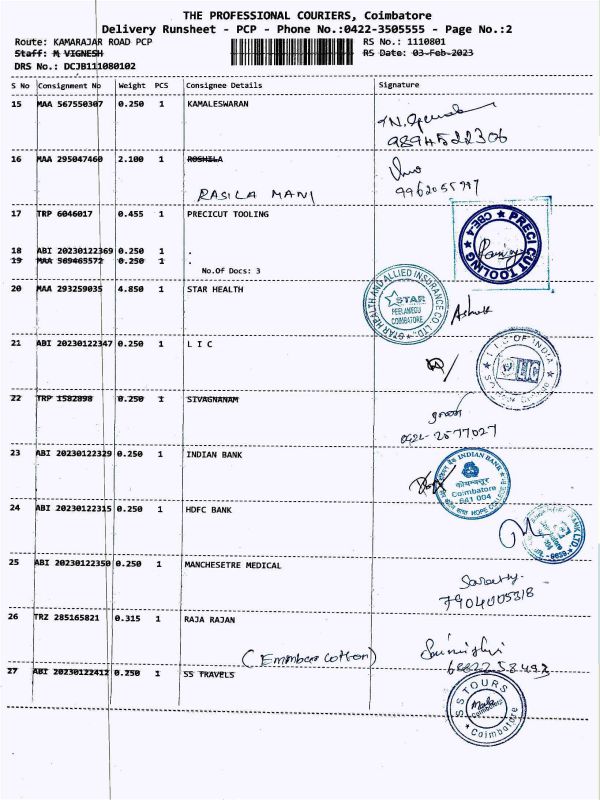 THE PROFESSIONAL COURIERS, Coimbatore
Delivery Runsheet - PCP - Phone No.:0422-3505555 - Page No.:2
Route: KAMARAJAR ROAD PCP RS No.: 1110801
Staff: M VIGNESH RS Date: 03-Feb-2023
DRS No.: DCJB111080102
S No Consignment No Weight PCS Consignee Details Signature
15 MAA 567550307 0.250 1 KAMALESWARAN
9894522306
16 MAA 295047460 2.100 1 ROSHILA
9962055797
RASILA MANI
17 TRP 6046017 0.455 1 PRECICUT TOOLING
PRECI CUT TOOLING CBE-4
18 ABI 20230122369 0.250 1 .
19 MAA 569465572 0.250 1 .
No.Of Docs: 3
20 MAA 293259035 4.850 1 STAR HEALTH
STAR HEALTH AND ALLIED INSURANCE CO. LTD.
STAR
PEELAMEDU
COIMBATORE
Ashok
21 ABI 20230122347 0.250 1 L I C
L I C OF INDIA
LIC
22 TRP 1582898 0.250 1 SIVAGNANAM
0422-2577027
23 ABI 20230122329 0.250 1 INDIAN BANK
INDIAN BANK
कोयम्बत्तूर
Coimbatore
641 004
HOPE COLLEGE
24 ABI 20230122315 0.250 1 HDFC BANK
BANK LTD.
25 ABI 20230122350 0.250 1 MANCHESETRE MEDICAL
7904005318
26 TRZ 285165821 0.315 1 RAJA RAJAN
27 ABI 20230122412 0.250 1 SS TRAVELS
S S TOURS
Coimbatore